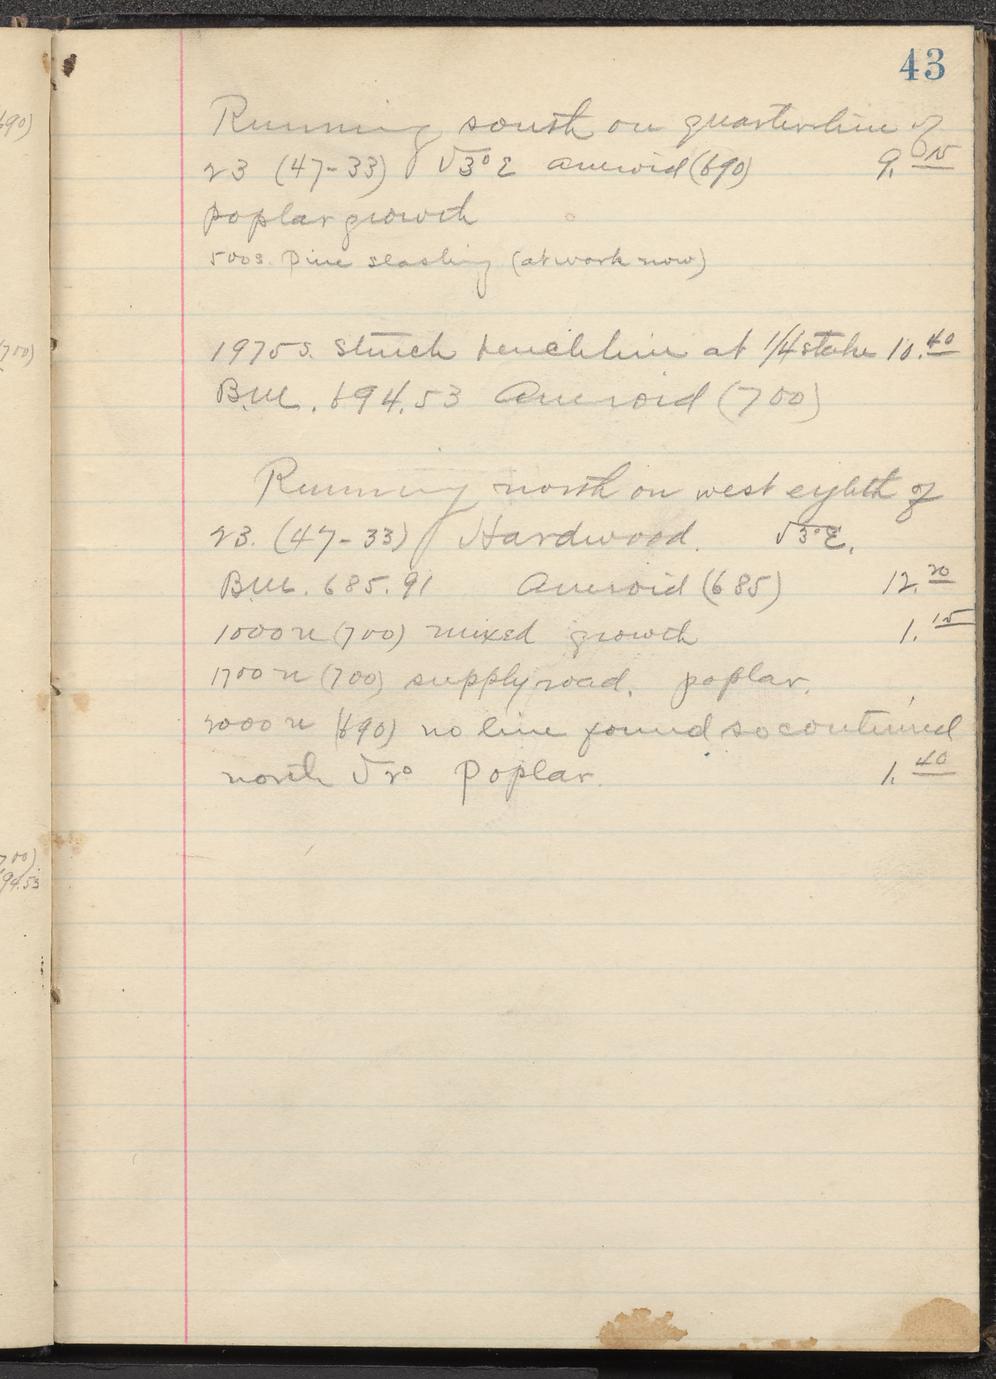 690)
700)
700)
694.53
43
Running south on quarterline of
23 (47-33) V3°E Aneroid (690) 9.15
poplar growth
500 S. Pine slashing (at work now)
1975 S. Struck benchline at 1/4 stake 10.40
B.M. 694.53 Aneroid (700)
Running north on west eighth of
23. (47-33) Hardwood. V3°E.
B.M. 685.91 Aneroid (685) 12.20
1000 N (700) mixed growth 1.15
1700 N (700) supply road. poplar.
2000 N (690) no line found so continued
north V2° Poplar. 1.40